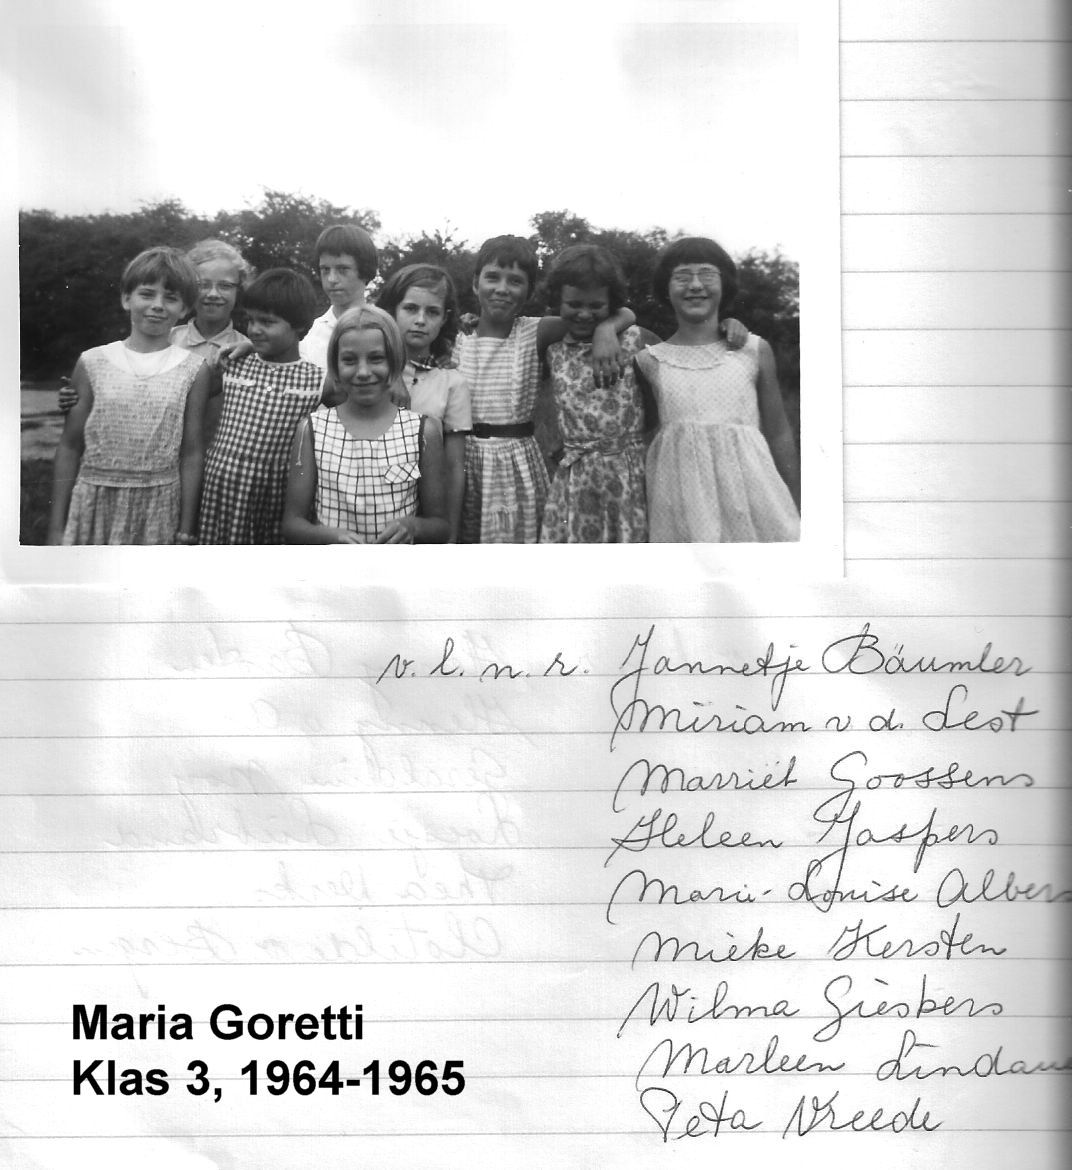 v. l. n. r. Jannetje Bäumler
Miriam v d. Lest
Marriët Goossens
Heleen Jaspers
Marie-Louise Albers
Mieke Kersten
Wilma Giesbers
Marleen Lindau
Peta Vreede
Maria Goretti
Klas 3, 1964-1965